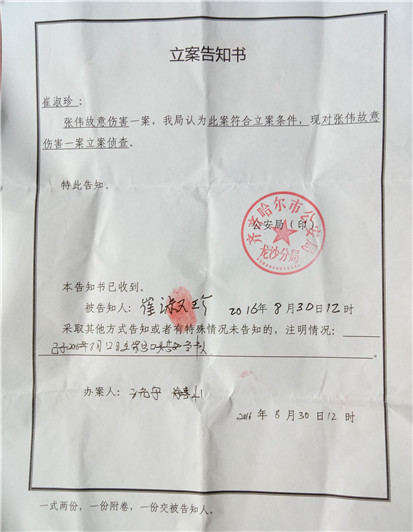 立案告知书
崔淑珍：
张伟故意伤害一案，我局认为此案符合立案条件，现对张伟故意
伤害一案立案侦查。
特此告知。
齐齐哈尔市公安局
公安局（印）
龙沙分局
本告知书已收到。
被告知人：崔淑珍 2016年8月30日12时
采取其他方式告知或者有特殊情况未告知的，注明情况：
2016年8月12日
办案人：
2016年8月30日12时
一式两份，一份附卷，一份交被告知人。